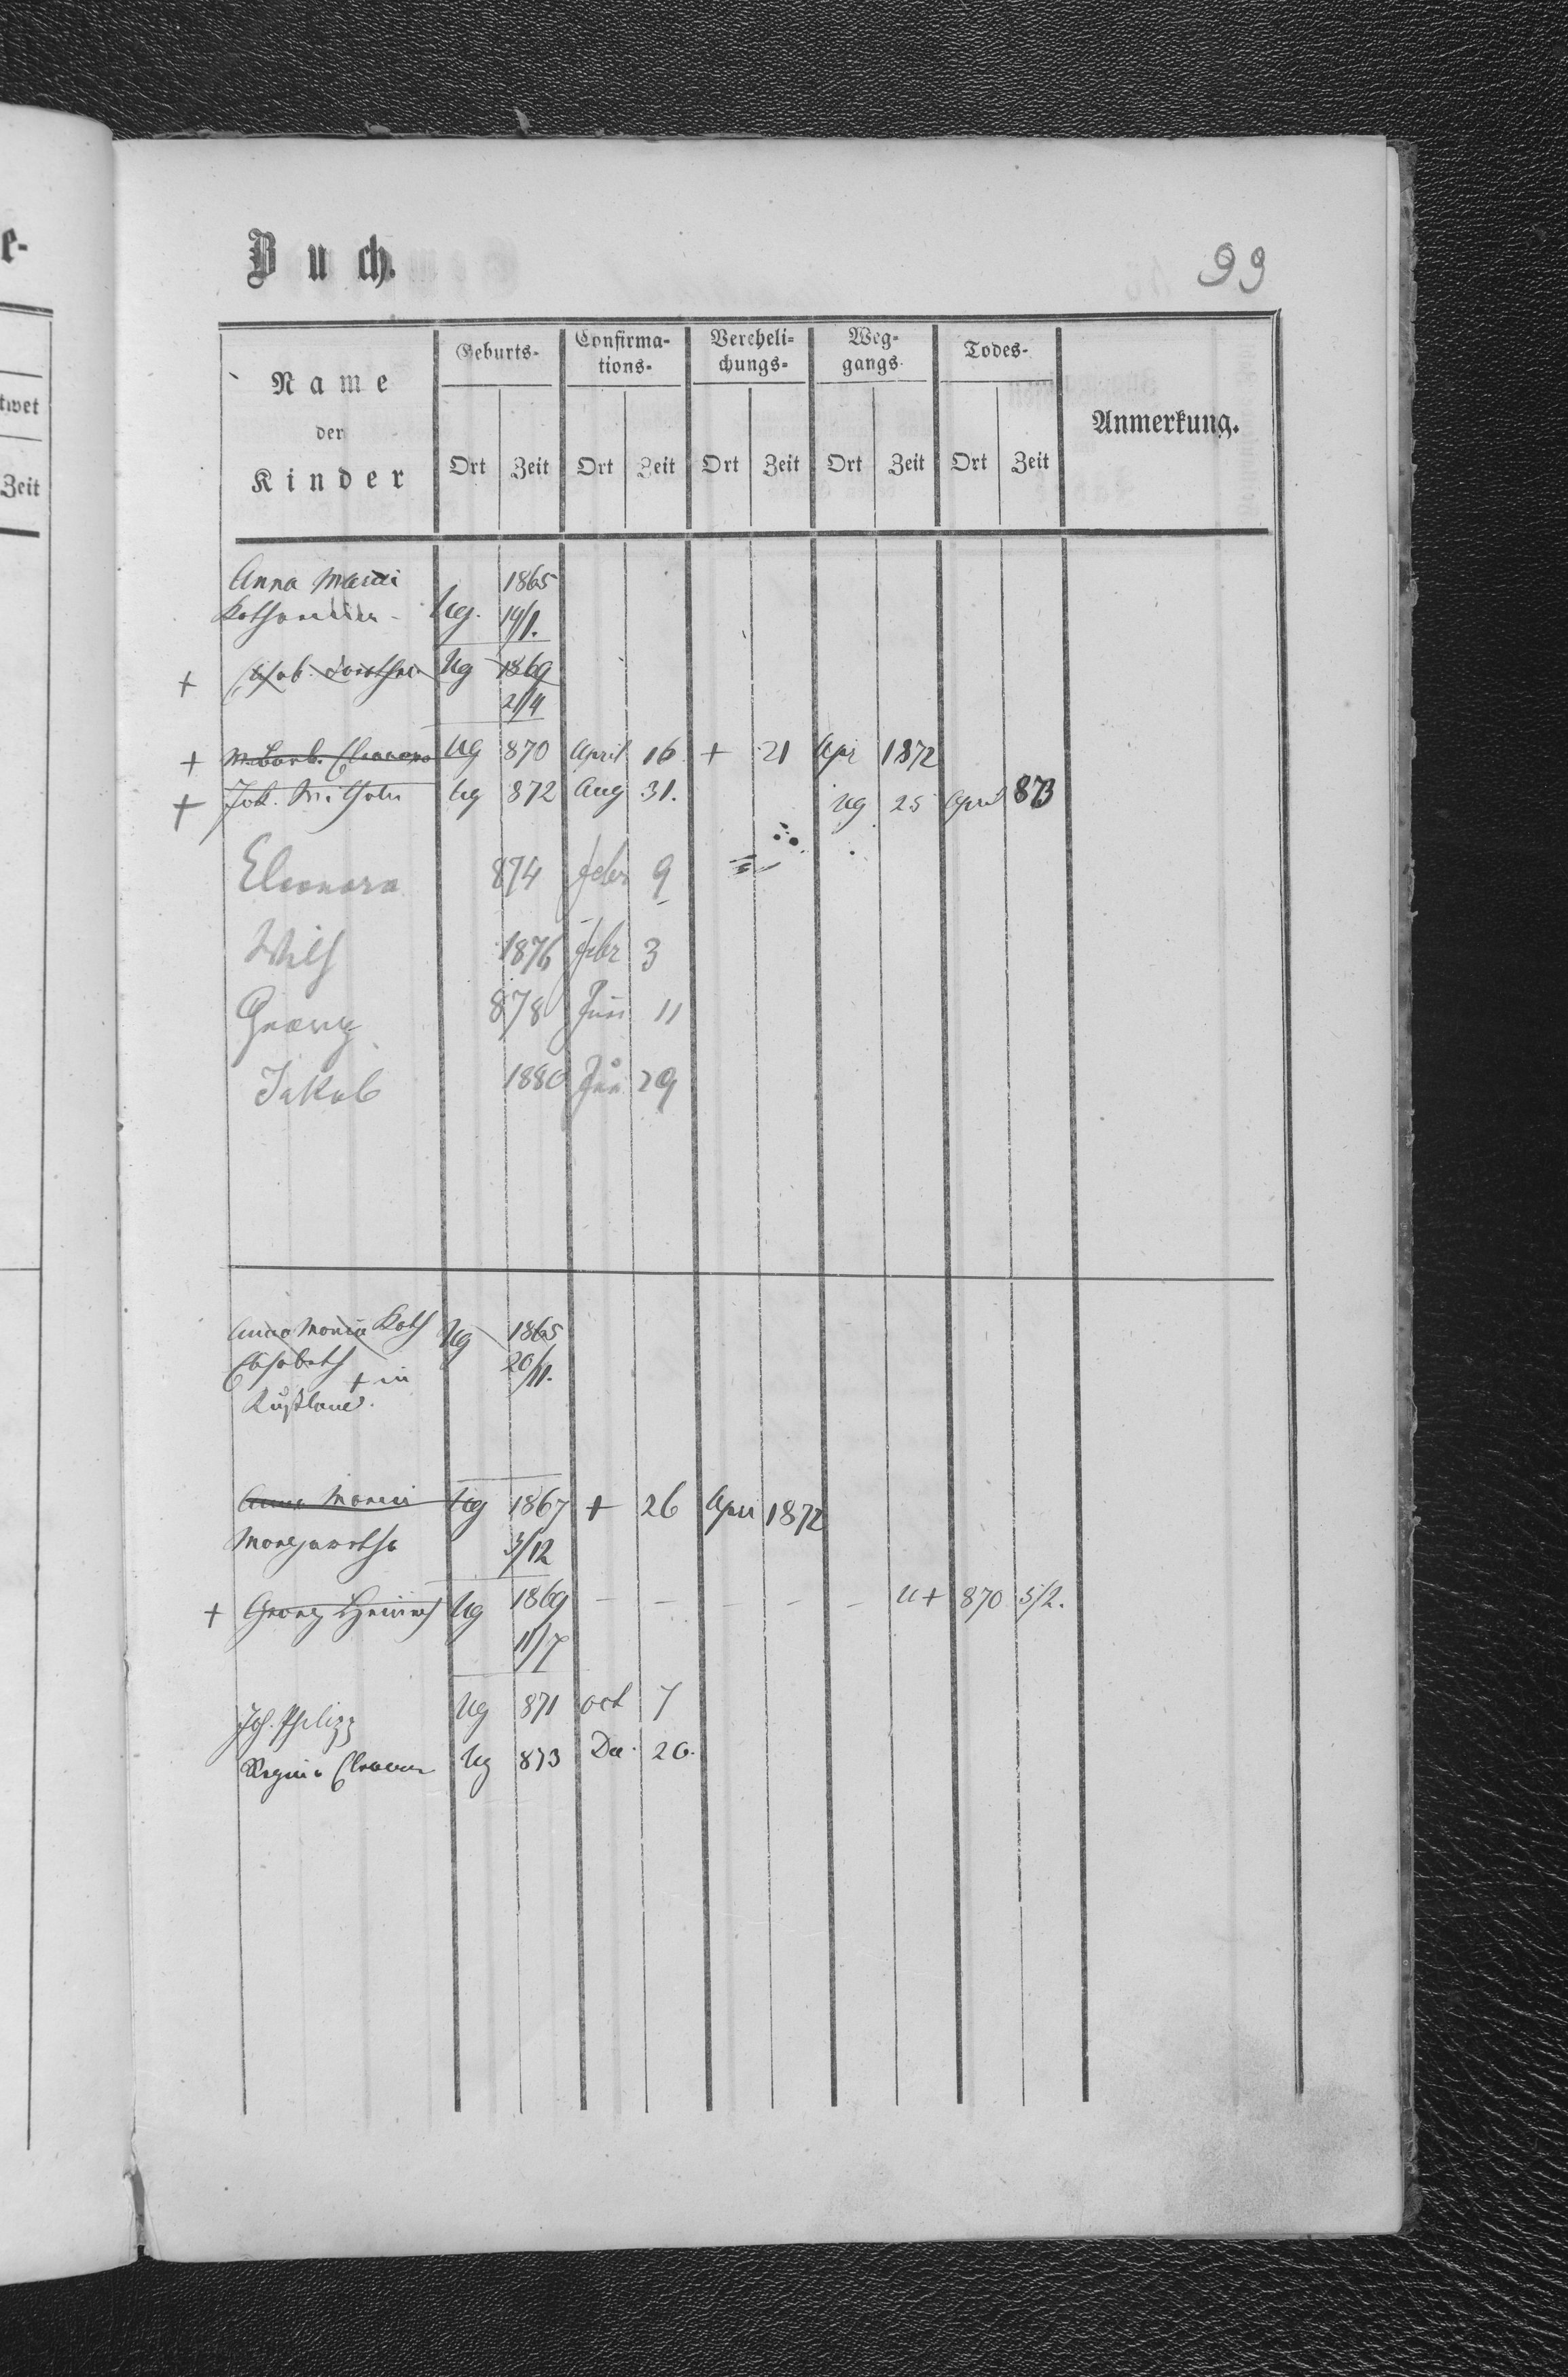 e-
twet
Zeit
Buch.
99
Name der Kinder
Geburts-
Confirma-
tions-
Vereheli-
chungs-
Weg-
gangs
Todes-
Anmerkung.
Ort Zeit Ort Zeit Ort Zeit Ort Zeit Ort Zeit
Anna Maria 1865
Katharina - Ug. 14/1.
+ Elisab. Dorothea Ug 1869
21/4
+ M. Barb. Eleonora Ug 870 April 16 + 21 Apr 1872
+ Joh. Wilhelm Ug 872 Aug 31. Ug 25 April 873
Eleonora 874 Febr 9
Wilh 1876 Febr 3
Georg 878 Juni 11
Jakob 1880 29
Anna Maria Kath Ug 1865
Elisabeth 20/11.
+ in
Rußland.
Anna Maria Ug 1867 + 26 Apri 1872
Margaretha 3/12
+ Georg Heinrich Ug 1869 - - - - - U + 870 5/2.
11/7
Joh. Philipp Ug 871 oct 7
Regina Eleonora Ug 873 De 26.